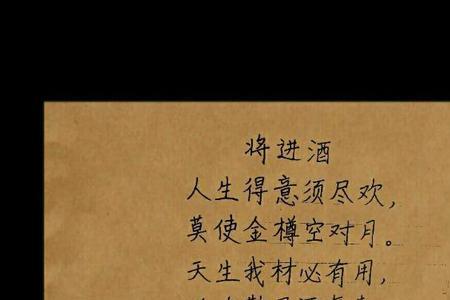 将进酒
人生得意须尽欢，
莫使金樽空对月。
天生我材必有用，